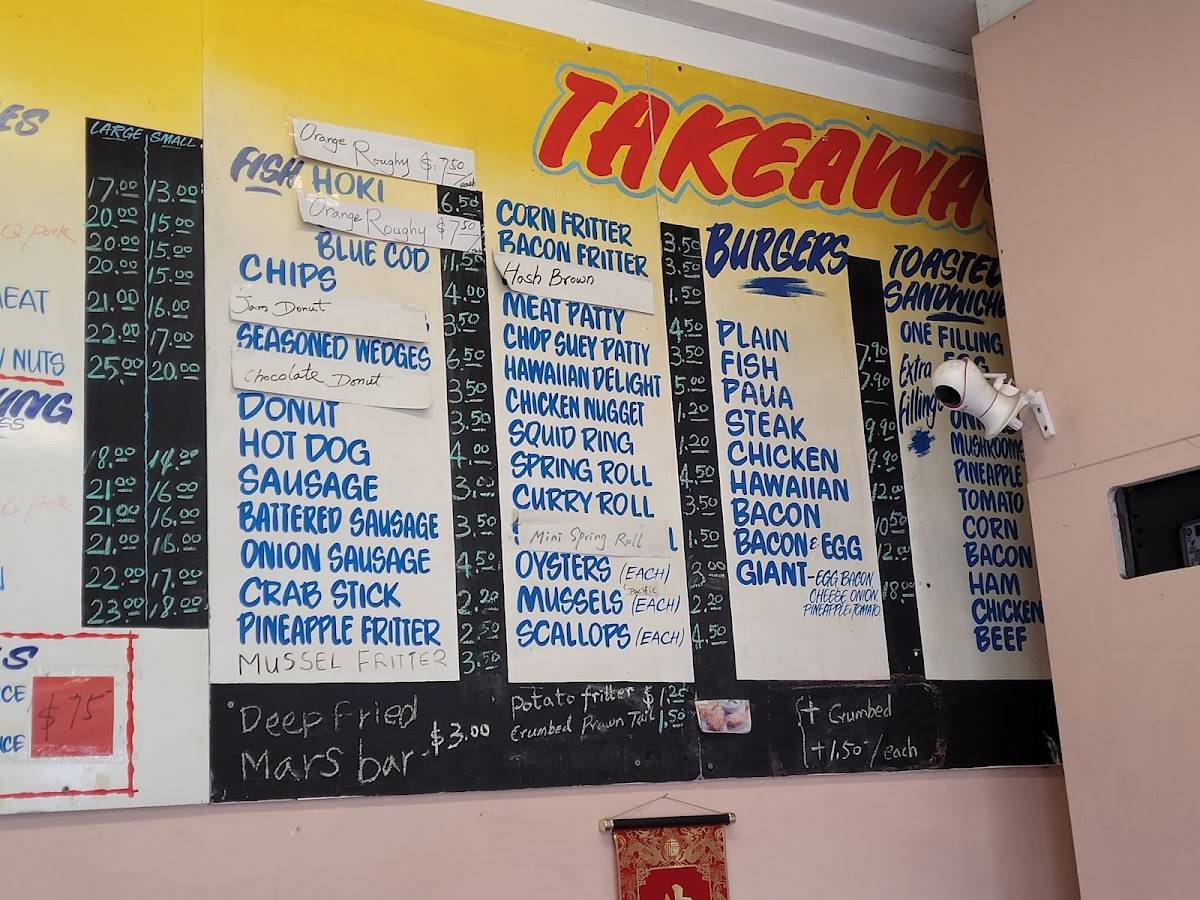 TAKEAWA
ES
LARGE SMALL
17.00 13.00
20.00 15.00
Q pork
20.00 15.00
20.00 15.00
EAT
21.00 16.00
22.00 17.00
NUTS
25.00 20.00
UNG
ES
18.00 14.00
21.00 16.00
Q pork
21.00 16.00
21.00 16.00
22.00 17.00
23.00 18.00
S
CE
$75
CE
Orange Roughy $7.50/each
FISH HOKI 6.50
Orange Roughy $7.50
BLUE COD 11.50
CHIPS 4.00
Jam Donut 3.50
SEASONED WEDGES 6.50
Chocolate Donut 3.50
DONUT 3.50
HOT DOG 4.00
SAUSAGE 3.00
BATTERED SAUSAGE 3.50
ONION SAUSAGE 4.50
CRAB STICK 2.20
PINEAPPLE FRITTER 2.50
MUSSEL FRITTER 3.50
CORN FRITTER 3.50
BACON FRITTER 3.50
Hash Brown 1.50
MEAT PATTY 4.50
CHOP SUEY PATTY 3.50
HAWAIIAN DELIGHT 5.00
CHICKEN NUGGET 1.20
SQUID RING 1.20
SPRING ROLL 4.50
CURRY ROLL 3.50
Mini Spring Roll 1.50
OYSTERS (EACH) 3.00
Pacific
MUSSELS (EACH) 2.20
SCALLOPS (EACH) 4.50
BURGERS
PLAIN 7.90
FISH 7.90
PAUA
STEAK 9.90
CHICKEN 9.90
HAWAIIAN 12.00
BACON 10.50
BACON & EGG 12.00
GIANT - EGG BACON, 18.00
CHEESE ONION,
PINEAPPLE, TOMATO
TOASTED
SANDWICHE
ONE FILLING
Extra
filling
EGG
ONI
MUSHROOMS
PINEAPPLE
TOMATO
CORN
BACON
HAM
CHICKEN
BEEF
Deep Fried
Mars bar $3.00
potato fritter $1.20
Crumbed Prawn Tail 1.50
+ Crumbed
+1.50/each